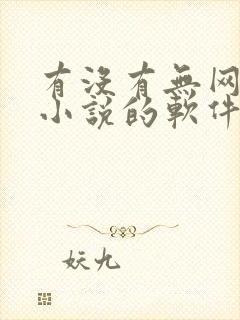 有沒有無网
小說的軟件
妖九